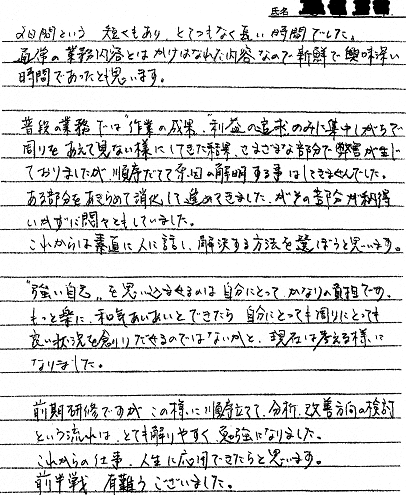 氏名
2日間という 短くもあり、とてつもなく長い時間でした。
通常の業務内容とはかけはなれた内容なので新鮮で興味深い
時間であったと思います。
普段の業務では"作業の成果"、"利益の追求"のみに集中しがちで
周りをあえて見ない様にしてきた結果、さまざまな部分で弊害が生じ
ておりましたが、順序だてて原因の解明する事はしてきませんでした。
ある部分をあきらめて消化して進めてきましたが、その部分が納得
いかずに悶々ともしていました。
これからは素直に人に話し、解決する方法を選ぼうと思います。
"強い自己"を思い込ませるのは自分にとってかなりの負担です。
もっと楽に、和気あいあいとできたら自分にとっても周りにとっても
良い状況を創りだせるのではないかと、現在は考える様に
なりました。
前期研修ですが、この様に順序立てて、分析、改善方向の検討
という流れは、とても解りやすく勉強になりました。
これからの仕事、人生に応用できたらと思います。
前半戦、有難うございました。